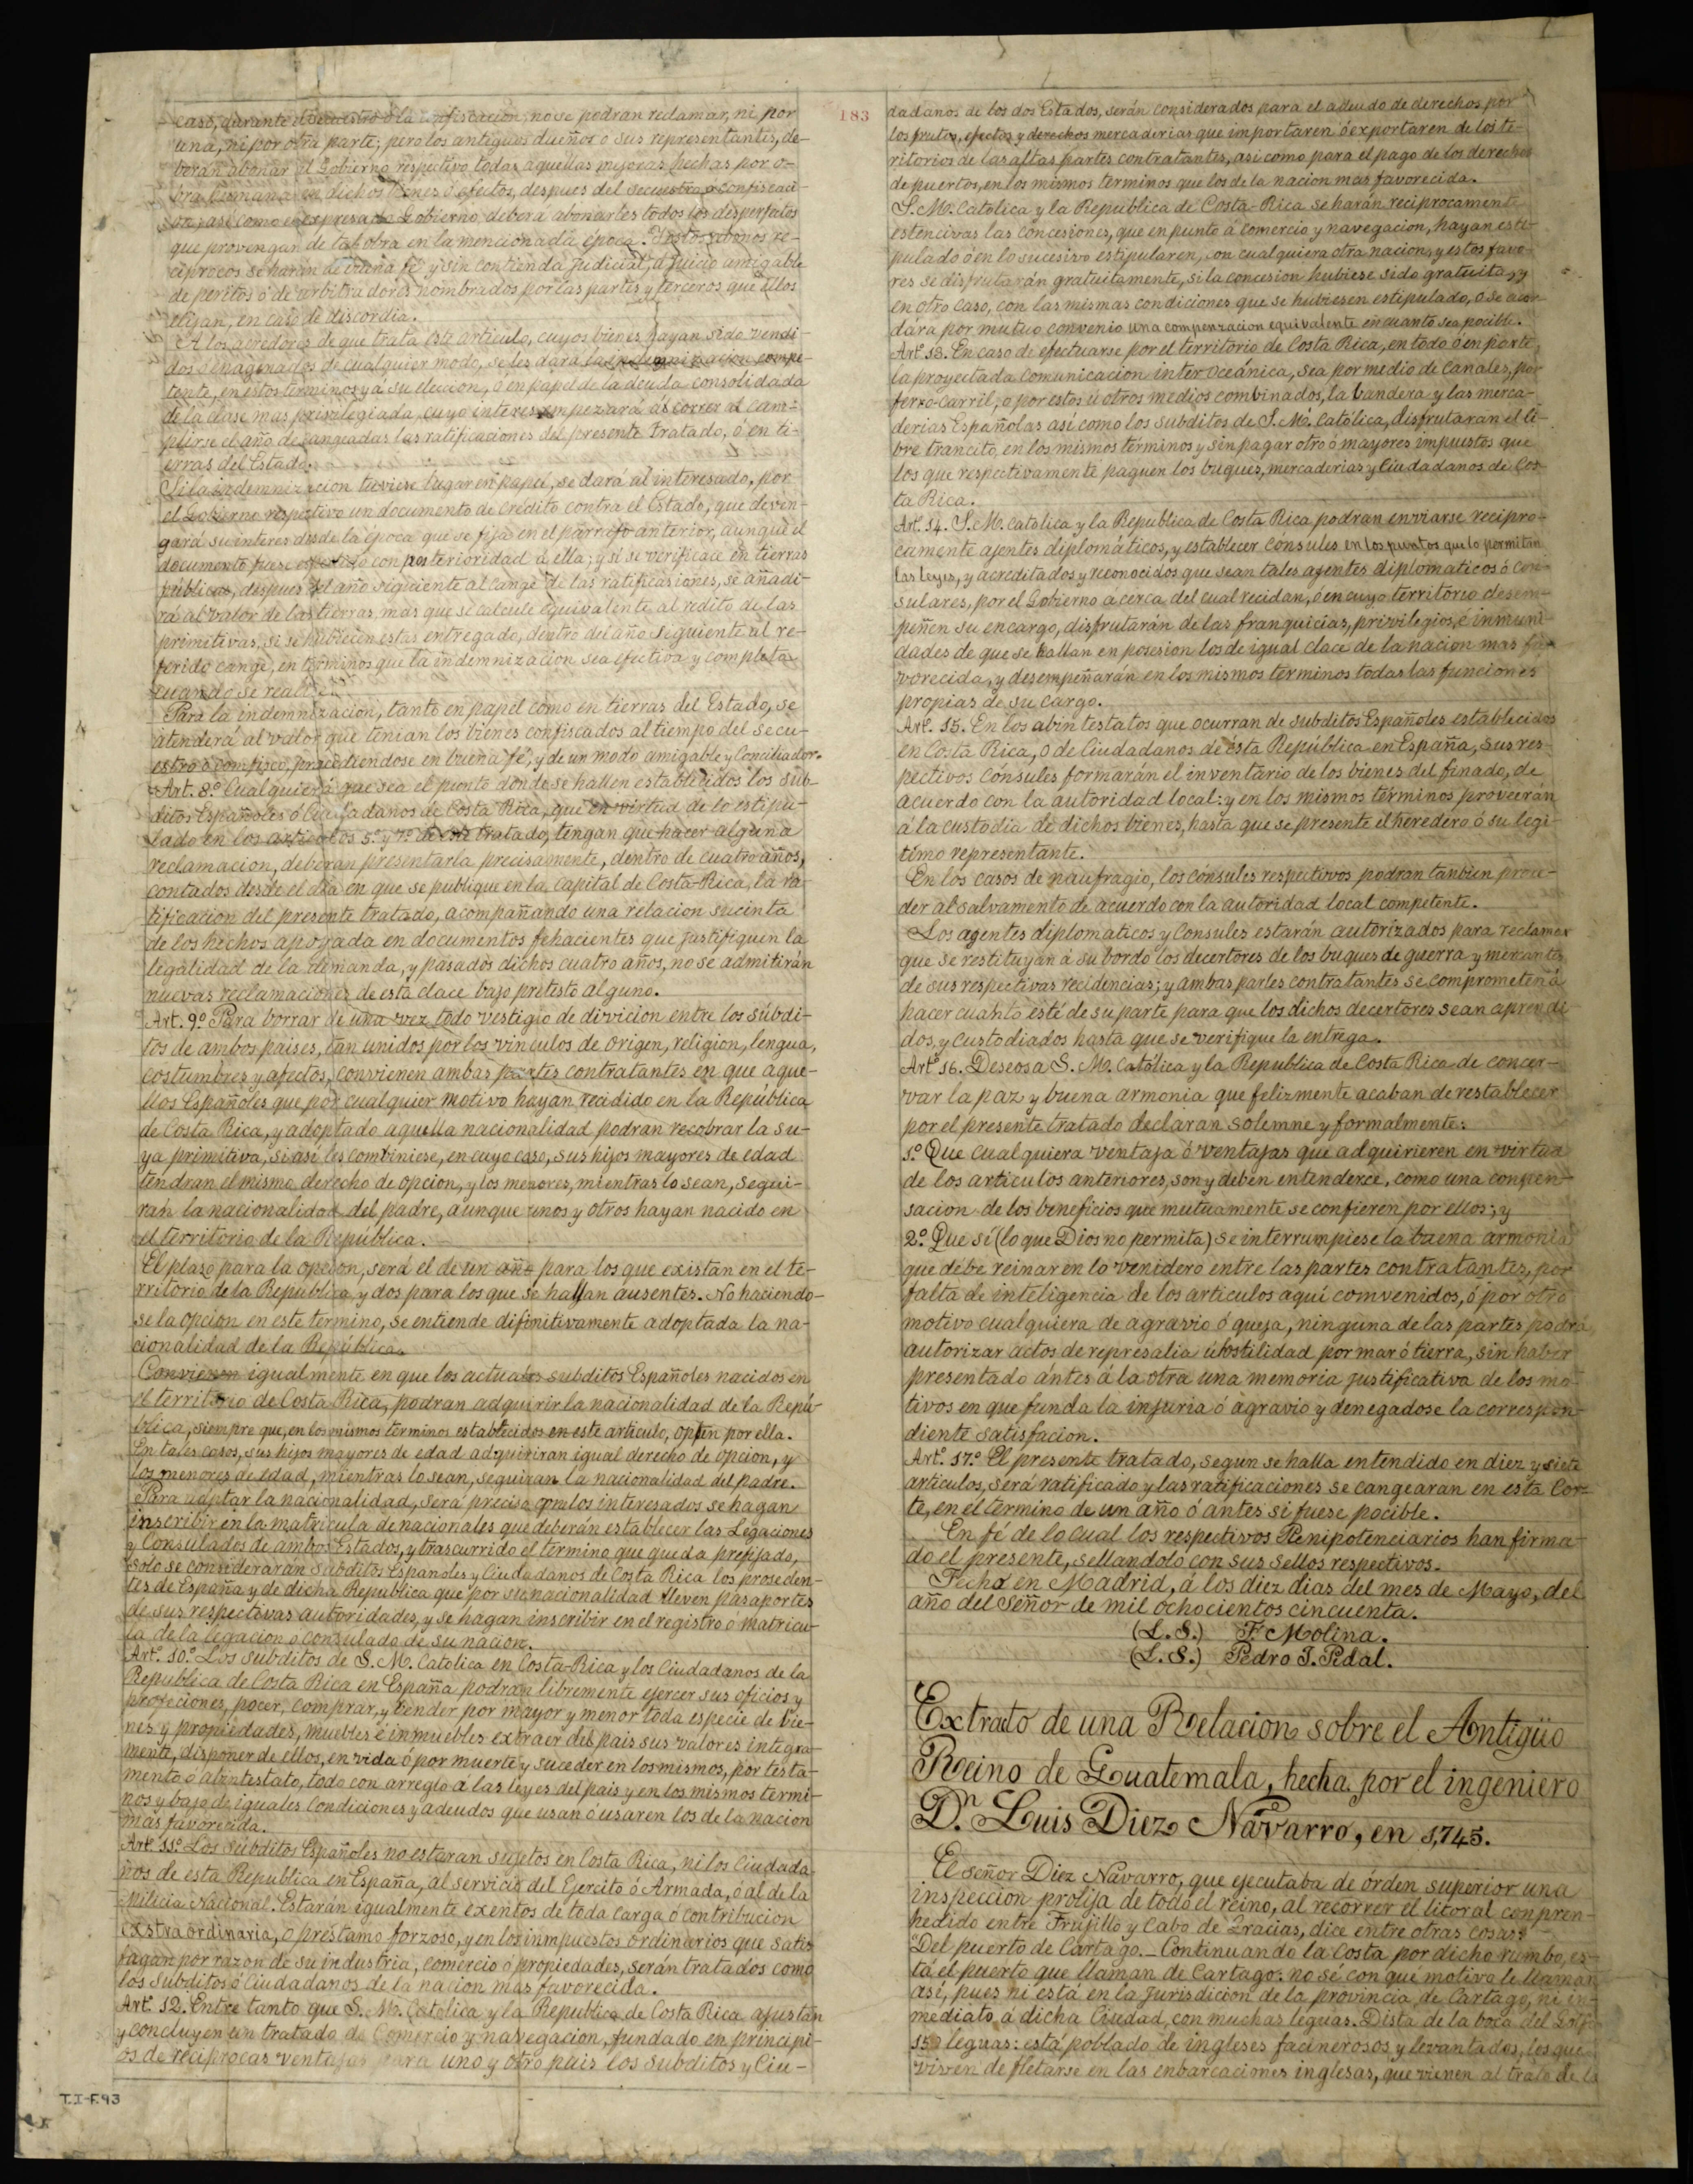 caso, durante el secuestro ó la confiscacion, no se podran reclamar, ni por
una, ni por otra parte; pero los antiguos dueños o sus representantes, de-
beran abonar al Gobierno respectivo todas aquellas mejoras hechas por o-
bra humana en dichos bienes ó efectos, despues del secuestro o confiscaci-
on; asi como el expresado Gobierno, deberá abonarles todos los desperfetos
que provengan de tal obra en la mencionada época. Y estos abonos re-
ciprocos se harán de buena fé y sin contienda judicial, á juicio amigable
de peritos ó de arbitradores nombrados por las partes y terceros que ellos
elijan, en caso de discordia.
A los acredores de que trata este articulo, cuyos bienes hayan sido vendi-
dos ó enagenados de cualquier modo, se les dará la indemnizacion compe-
tente, en estos terminos y á su eleccion, ó en papel de la deuda consolidada
de la clase mas privilegiada, cuyo interes empezará á correr al cum-
plirse el año de cangeadas las ratificaciones del presente tratado, ó en ti-
erras del Estado.
Si la indemnizacion tuviese lugar en papel, se dará al interesado, por
el Gobierno respectivo un documento de crédito contra el Estado, que deven-
gará su interes desde la época que se fija en el parrafo anterior, aunque el
documento fuese expedido con posterioridad á ella; y si se verificace en tierras
públicas, despues del año seguiente al cange de las ratificasiones, se añadi-
rá al valor de las tierras mas que se calcule equivalente al redito de las
primitivas, si se hubiecen estas entregado, dentro del año seguiente al re-
ferido cange, en terminos que la indemnizacion sea efectiva y completa
cuando se realice.
Para la indemnizacion, tanto en papel como en tierras del Estado, se
atenderá al valor que tenian los bienes confiscados al tiempo del secu-
estro ó comfisco, procediendose en buena fé, y de un modo amigable y conciliador.
Art. 8º Cualquiera que sea el punto donde se hallen establecidos los súb-
ditos Españoles ó Ciudadanos de Costa Rica, que en virtud de lo estipu-
lado en los articulos 5º y 7º de este tratado, tengan que hacer alguna
reclamacion, deberan presentarla precisamente, dentro de cuatro años,
contados desde el dia en que se publique en la capital de Costa-Rica, la ra-
tificacion del presente tratado, acompañando una relacion sucinta
de los hechos apoyada en documentos fehacientes que justifiquen la
legalidad de la demanda, y pasados dichos cuatro años, no se admitirán
nuevas reclamaciones de esta clace bajo pretesto alguno.
Art. 9º Para borrar de una vez todo vestigio de divicion entre los súbdi-
tos de ambos paises, tan unidos por los vinculos de origen, religion, lengua,
costumbres y afectos, convienen ambas partes contratantes en que aque-
llos Españoles que por cualquier motivo hayan recidido en la República
de Costa Rica, y adoptado aquella nacionalidad podran recobrar la su-
ya primitiva, si asi les combiniese, en cuyo caso, sus hijos mayores de edad
tendran el mismo derecho de opcion, y los menores, mientras lo sean, segui-
rán la nacionalidad del padre, aunque unos y otros hayan nacido en
el territorio de la República.
El plazo para la opcion, será el de un año para los que existan en el te-
rritorio de la República y dos para los que se hallan ausentes. No haciendo-
se la opcion en este termino, se entiende difinitivamente adoptada la na-
cionalidad de la República.
Convienen igualmente en que los actuales subditos Españoles nacidos en
el territorio de Costa Rica, podran adquirir la nacionalidad de la Repú-
blica, siempre que, en los mismos terminos establecidos en este articulo, opten por ella.
En tales casos, sus hijos mayores de edad adquiriran igual derecho de opcion, y
los menores de edad, mientras lo sean, seguiran la nacionalidad del padre.
Para adoptar la nacionalidad, será preciso que los interesados se hagan
inscribir en la matricula de nacionales que deberán establecer las Legaciones
y Consulados de ambos Estados, y trascurrido el termino que queda prefijado,
solo se considerarán Subditos Españoles y Ciudadanos de Costa Rica los proseden-
tes de España y de dicha Republica que por su nacionalidad lleven pasaportes
de sus respectivas autoridades, y se hagan inscribir en el registro ó matricu-
la de la legacion o consulado de su nacion.
Artº 10º Los subditos de S. M. Catolica en Costa-Rica y los Ciudadanos de la
Republica de Costa Rica en España podran libremente ejercer sus oficios y
profeciones, pocer, comprar, y vender por mayor y menor toda especie de bie-
nes y propiedades, muebles é inmuebles extraer del pais sus valores integra-
mente, disponer de ellos, en vida ó por muerte y suceder en los mismos, por testa-
mento o abintestato, todo con arreglo a las leyes del pais y en los mismos termi-
nos y bajo de iguales condiciones y adeudos que usan ó usaren los de la nacion
mas favorecida.
Artº 11º Los Súbditos Españoles no estaran sujetos en Costa Rica, ni los Ciudada-
nos de esta Republica en España, al servicio del Ejercito ó Armada, ó al de la
Milicia Nacional. Estarán igualmente exentos de toda carga ó contribucion
exstraordinaria, o préstamo forzoso, y en los inmpuestos ordinarios que satis-
fagan por razon de su industria, comercio o propiedades, serán tratados como
los Subditos ó Ciudadanos de la nacion mas favorecida.
Artº 12. Entre tanto que S. M. Catolica y la Republica de Costa Rica ajustan
y concluyen un tratado de Comercio y navegacion, fundado en principi-
os de reciprocas ventajas para uno y otro pais los subditos y Ciu-
T.I-F.93
183
dadanos de los dos Estados, serán considerados para el adeudo de derechos por
los frutos, efectos y derechos mercaderias que importaren ó exportaren de los te-
ritorios de las altas partes contratantes, asi como para el pago de los derechos
de puertos, en los mismos terminos que los de la nacion mas favorecida.
S. M. Catolica y la República de Costa-Rica se harán reciprocamente
estencivas las concesiones, que en punto á comercio y navegacion, hayan esti-
pulado ó en lo sucesivo estipularen, con cualquiera otra nacion, y estos favo-
res se disfrutarán gratuitamente, si la concesion hubiese sido gratuita, y
en otro caso, con las mismas condiciones que se hubiesen estipulado, o se acor-
dára por mutuo convenio una compenzacion equivalente en cuanto sea pocible.
Artº 13. En caso de efectuarse por el territorio de Costa Rica, en todo ó en parte,
la proyectada comunicacion inter oceánica, sea por medio de canales, por
ferro-carril, o por estos ú otros medios combinados, la bandera y las merca-
derias Españolas así como los subditos de S. M. Católica, disfrutaran el li-
bre trancito, en los mismos términos y sin pagar otro ó mayores impuestos que
los que respectivamente paguen los buques, mercaderias y Ciudadanos de Cos-
ta Rica.
Artº 14. S. M. catolica y la Republica de Costa Rica podran enviarse recipro-
camente ajentes diplomáticos, y establecer cónsules en los puntos que lo permitan
las leyes, y acreditados y reconocidos que sean tales agentes diplomaticos ó con-
sulares, por el Gobierno a cerca del cual recidan, ó en cuyo territorio desem-
peñen su encargo, disfrutarán de las franquicias, privilegios, é inmuni-
dades de que se hallan en posesion los de igual clace de la nacion mas fa-
vorecida, y desempeñarán en los mismos terminos todas las funciones
propias de su cargo.
Artº 15. En los abintestatos que ocurran de subditos Españoles establecidos
en Costa Rica, o de Ciudadanos de ésta República en España, sus res-
pectivos cónsules formarán el inventario de los bienes del finado, de
acuerdo con la autoridad local: y en los mismos términos proveerán
á la custodia de dichos bienes, hasta que se presente el heredero ó su legi-
timo representante.
En los casos de naufragio, los cónsules respectivos podran tanbien proce-
der al salvamento de acuerdo con la autoridad local competente.
Los agentes diplomaticos y Consules estarán autorizados para reclamar
que se restituyan a su bordo los decertores de los buques de guerra y mercantes
de sus respectivas recidencias; y ambas partes contratantes se comprometen á
hacer cuanto esté de su parte para que los dichos decertores sean aprendi-
dos, y custodiados hasta que se verifique la entrega.
Artº 16. Deseosa S. M. Católica y la Republica de Costa Rica de concer-
var la paz y buena armonia que felizmente acaban de restablecer
por el presente tratado declaran solemne y formalmente:
1º. Que cualquiera ventaja ó ventajas que adquirieren en virtud
de los articulos anteriores, son y deben entenderce, como una conpen-
sacion de los beneficios que mutuamente se confieren por ellos; y
2º. Que sí (lo que Dios no permita) se interrumpiese la buena armonia
que debe reinar en lo venidero entre las partes contratantes, por
falta de inteligencia de los articulos aquí comvenidos, ó por otro
motivo cualquiera de agravio ó queja, ninguna de las partes podrá
autorizar actos de represalia ú hostilidad por mar ó tierra, sin haber
presentado ántes á la otra una memoria justificativa de los mo-
tivos en que funda la injuria ó agravio y denegadose la correspon-
diente satisfacion.
Artº 17º El presente tratado, segun se halla entendido en diez y siete
articulos, será ratificado y las ratificaciones se cangearan en esta Cor-
te, en el termino de un año ó antes si fuese pocible.
En fé de lo cual los respectivos Plenipotenciarios han firma-
do el presente, sellandolo con sus sellos respectivos.
Fecho en Madrid, á los diez dias del mes de Mayo, del
año del Señor de mil ochocientos cincuenta.
(L. S.) F. Molina.
(L. S.) Pedro J. Pidal.
Extrato de una Relacion sobre el Antigüo
Reino de Guatemala, hecha por el ingeniero
D.n Luis Diez Navarro, en 1,745.
El señor Diez Navarro, que ejecutaba de órden superior una
inspeccion prolija de todo el reino, al recorrer el litoral conpren-
hedido entre Trujillo y Cabo de Gracias, dice entre otras cosas:
"Del puerto de Cartago._ Continuando la costa por dicho rumbo, es-
tá el puerto que llaman de Cartago: no sé con qué motivo le llaman
así, pues ni está en la jurisdicion de la provincia de Cartago, ni in-
mediato á dicha Ciudad, con muchas leguas. Dista de la boca del Golfo
150 leguas: está poblado de ingleses facinerosos y levantados, los que
viven de fletarse en las enbarcaciones inglesas, que vienen al trato de la